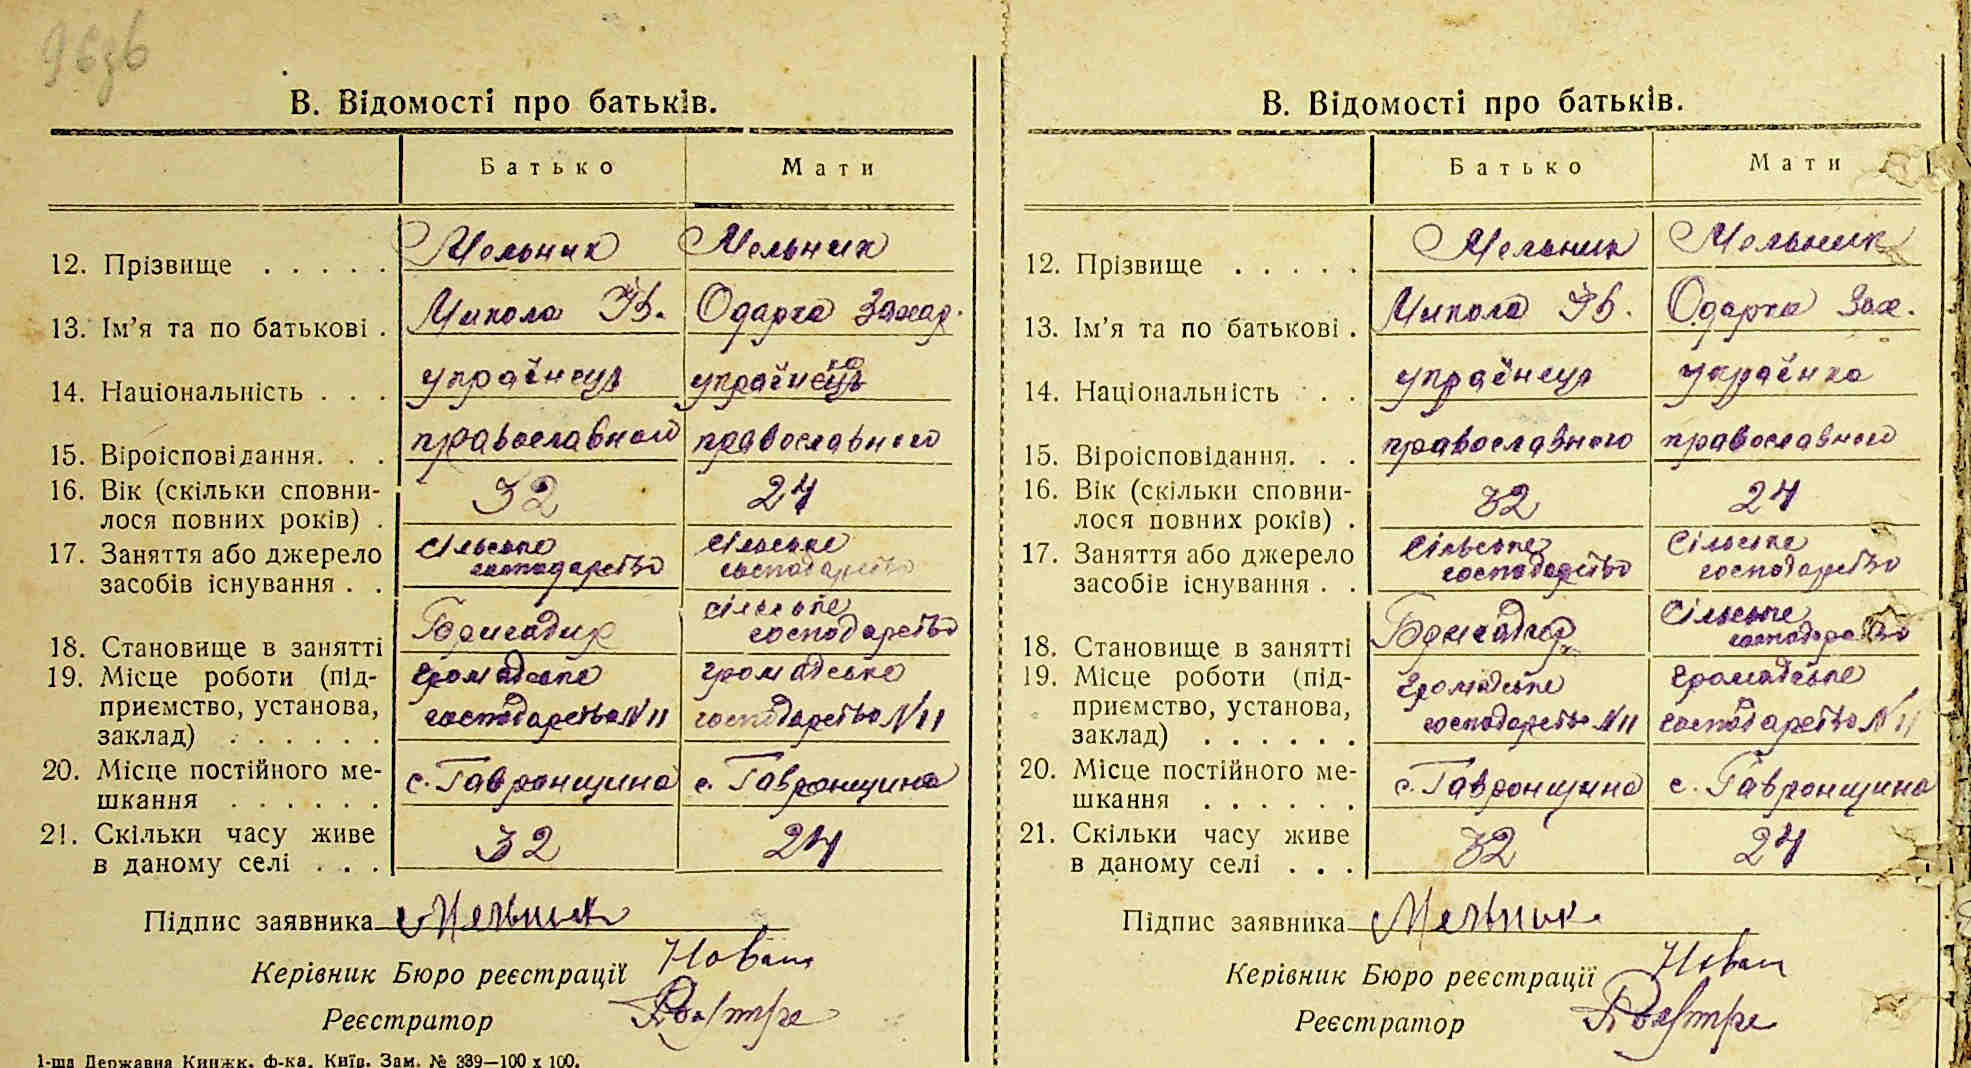 В. Відомості про батьків.
Батько Мати
12. Прізвище . . . . . Мельник Мельник
13. Ім’я та по батькові . Микола Ів. Одарка Захар.
14. Національність . . . українець українець
15. Віроісповідання. . . православного православного
16. Вік (скільки сповни-
лося повних років) . 32 24
17. Заняття або джерело сільське сільське
засобів існування . . господарство господарство
сільське
18. Становище в занятті Бригадир господарство
19. Місце роботи (під- громадське громадське
приємство, установа, господарство N 11 господарство N 11
заклад) . . . . . .
20. Місце постійного ме- с. Гавронщина с. Гавронщина
шкання . . . . . .
21. Скільки часу живе 32 24
в даному селі . . .
Підпис заявника Мельник
Керівник Бюро реєстрації
Реєстратор
1-ша Державна Книжк. ф-ка. Київ. Зам. № 339—100 х 100.
В. Відомості про батьків.
Батько Мати
12. Прізвище . . . . . Мельник Мельник
13. Ім’я та по батькові . Микола Ів. Одарка Зах.
14. Національність . . українець українка
15. Віроісповідання. . . православного православного
16. Вік (скільки сповни-
лося повних років) . 32 24
17. Заняття або джерело Сільське Сільське
засобів існування . . господарство господарство
Сільське
18. Становище в занятті Бригадир господарство
19. Місце роботи (під- громадське громадське
приємство, установа, господарство N 11 господарство N 11
заклад) . . . . . .
20. Місце постійного ме- с. Гавронщина с. Гавронщина
шкання . . . . . .
21. Скільки часу живе 32 24
в даному селі . . .
Підпис заявника Мельник
Керівник Бюро реєстрації
Реєстратор